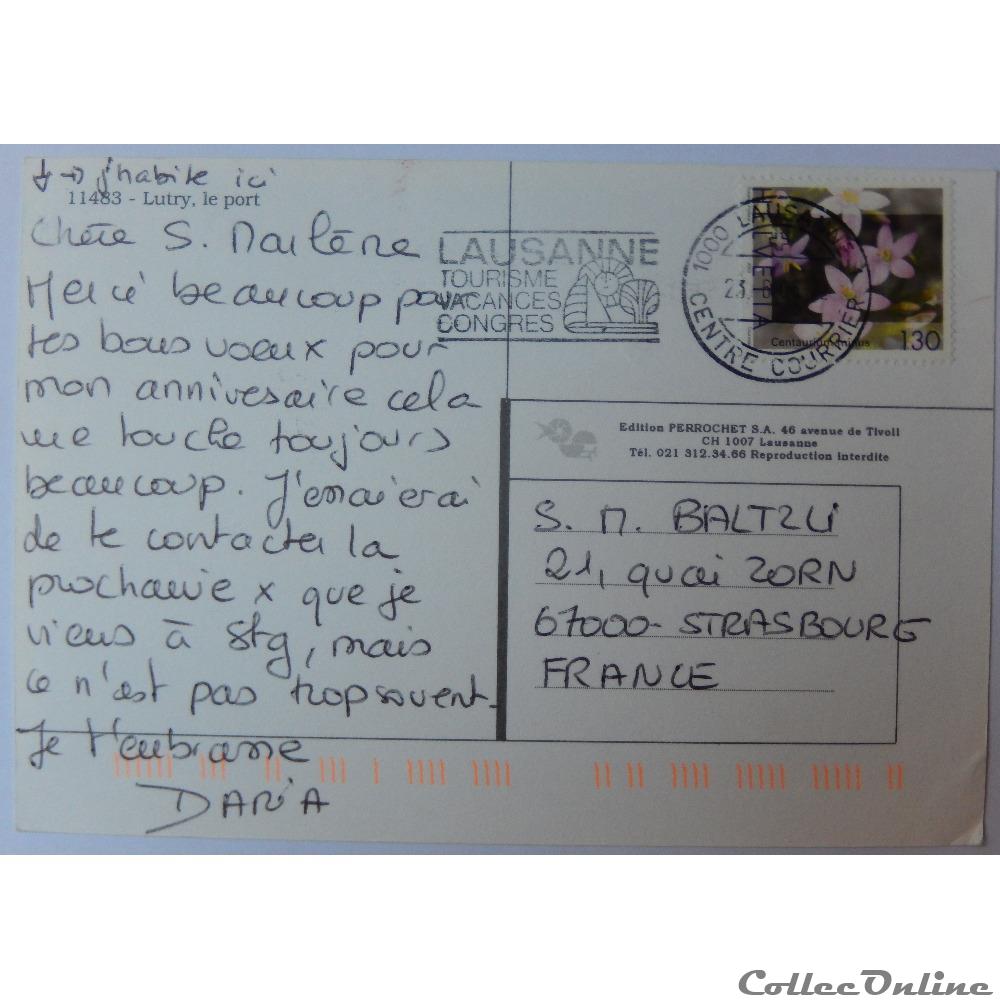 ↓→ j'habite ici
11483 - Lutry, le port
Chère S. Marlène
Merci beaucoup pour
tes bons voeux pour
mon annivesaire cela
me touche toujours
beaucoup. J'essaierai
de te contacter la
prochaine x que je
viens à Stg, mais
ce n'est pas trop souvent-
Je t'embrasse
DARIA
LAUSANNE
TOURISME
VACANCES
CONGRES
1000 LAUSANNE
CENTRE COURRIER
HELVETIA
Centaurium minus
130
Edition PERROCHET S.A. 46 avenue de Tivoli
CH 1007 Lausanne
Tél. 021 312.34.66 Reproduction interdite
S. M. BALTZLI
21, quai ZORN
67000- STRASBOURG
FRANCE
CollecOnline